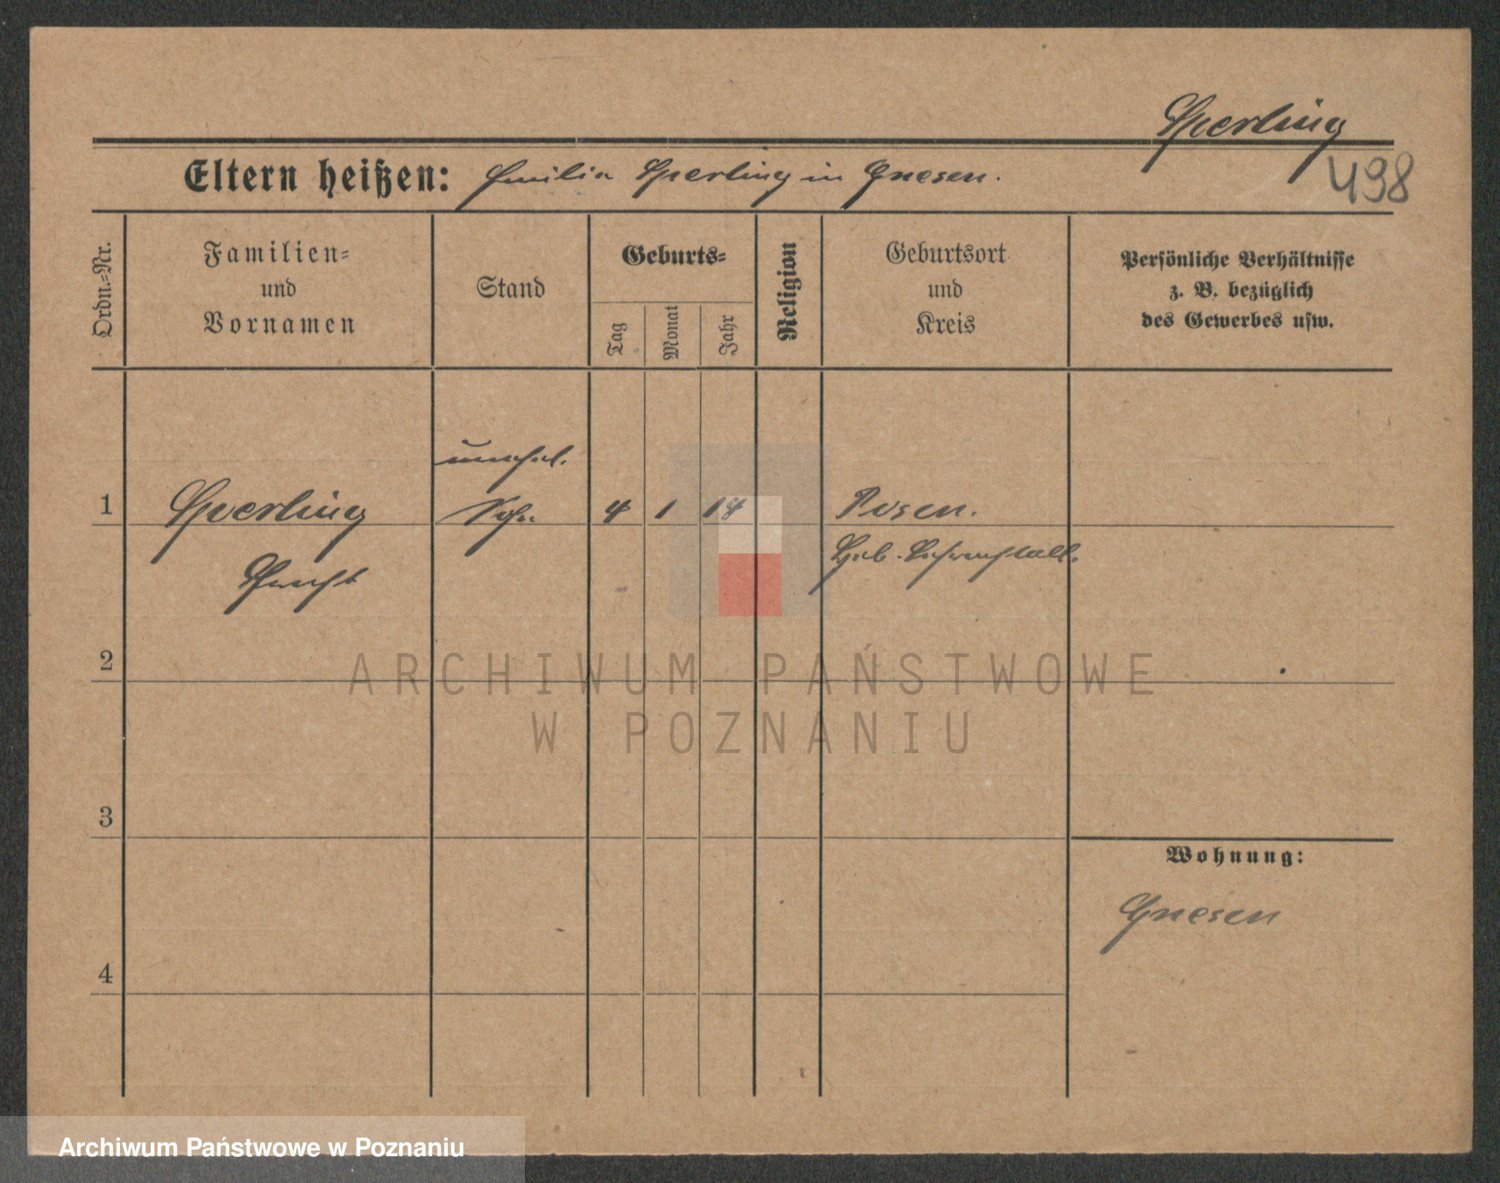 Sperling
498
Eltern heißen: Emilia Sperling in Gnesen.
Ordn.-Nr.
Familien-
und
Vornamen
Stand
Geburts-
Tag
Monat
Jahr
Religion
Geburtsort
und
Kreis
Persönliche Verhältnisse
z. B. bezüglich
des Gewerbes usw.
unehel.
1 Sperling 4 1 14 Posen.
Heb.
2
3
4
Wohnung:
Gnesen
ARCHIWUM PAŃSTWOWE
W POZNANIU
Archiwum Państwowe w Poznaniu